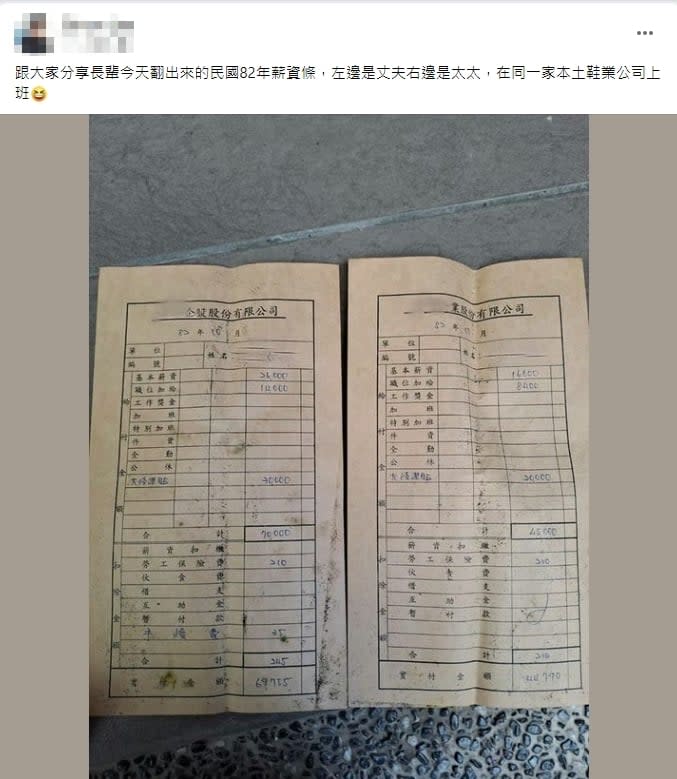 跟大家分享長輩今天翻出來的民國82年薪資條，左邊是丈夫右邊是太太，在同一家本土鞋業公司上
班😆
企業股份有限公司
82 年 月
單位
編號 姓名
基本薪資 26000
職位加給 14000
工作獎金
加班
特別加班
件資
全勤
公休
30000
給付金額
合計 70000
薪資扣繳
勞工保險費 210
伙食費
借支
互助金
暫付款
35
扣除金額
合計 245
實付金額 69755
業股份有限公司
82 年 月
單位
編號 姓名
基本薪資 16600
職位加給 8400
工作獎金
加班
特別加班
件資
全勤
公休
20000
給付金額
合計 45000
薪資扣繳
勞工保險費 210
伙食費
借支
互助金
暫付款
扣除金額
合計 210
實付金額 44790